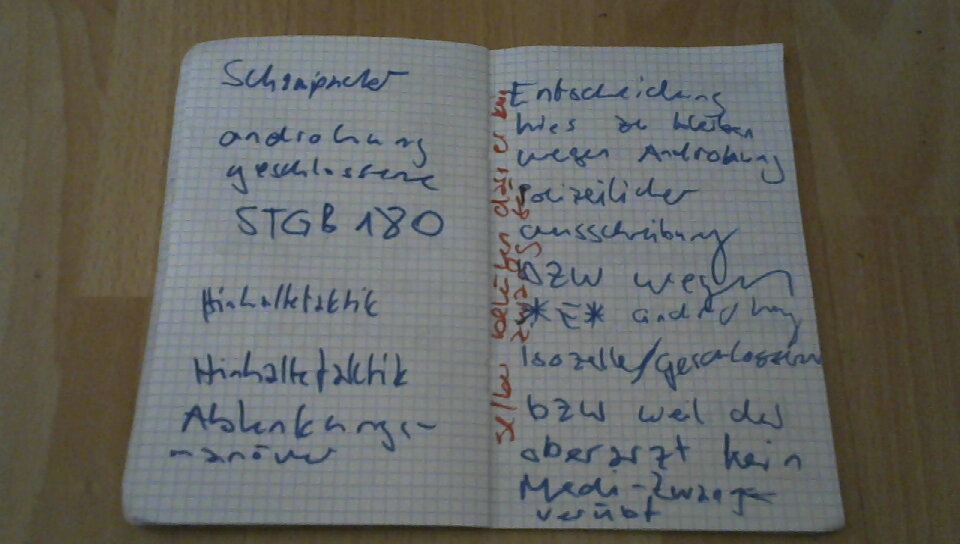 androhung
geschlossene
STGB 180
Hinhaltetaktik
Hinhaltetaktik
Ablenkungs-
manöver
Entscheidung
hies zu bleiben
wegen Androhung
polizeilicher
ausschreibung
BZW wegen
*E* androhung
Isozelle/geschlossen
bzw weil der
oberarzt kein
Medi-Zwang
verübt
selber